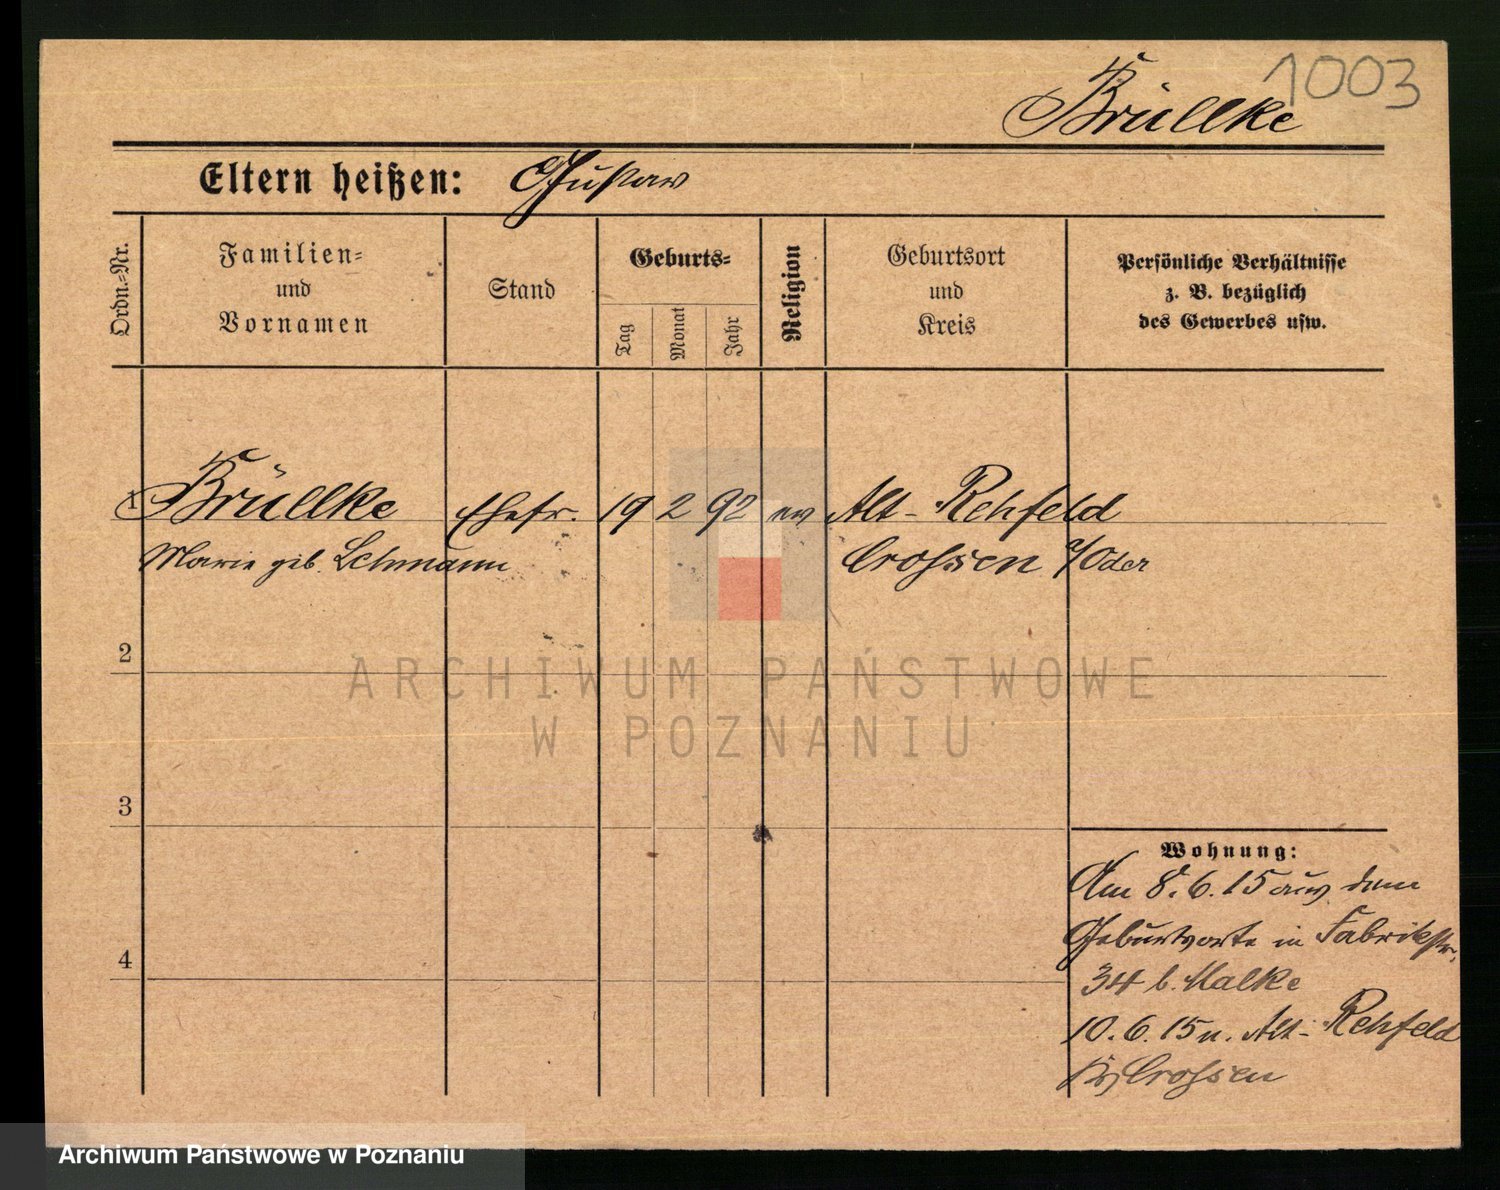 1003
Brüllke
Eltern heißen: Gustav
Ordn.-Nr.
Familien-
und
Vornamen
Stand
Geburts-
Tag
Monat
Jahr
Religion
Geburtsort
und
Kreis
Persönliche Verhältnisse
z. B. bezüglich
des Gewerbes usw.
1 Brüllke Ehefr. 19 2 92 ev Alt-Rehfeld
Marie geb. Lehmann Crossen a/Oder
2
ARCHIWUM PAŃSTWOWE
W POZNANIU
3
Wohnung:
Am 8.6.15 aus dem
Geburtsorte in Fabrikstr.
4
34 b. Malke
10.6.15 n. Alt-Rehfeld
Krs Crossen
Archiwum Państwowe w Poznaniu